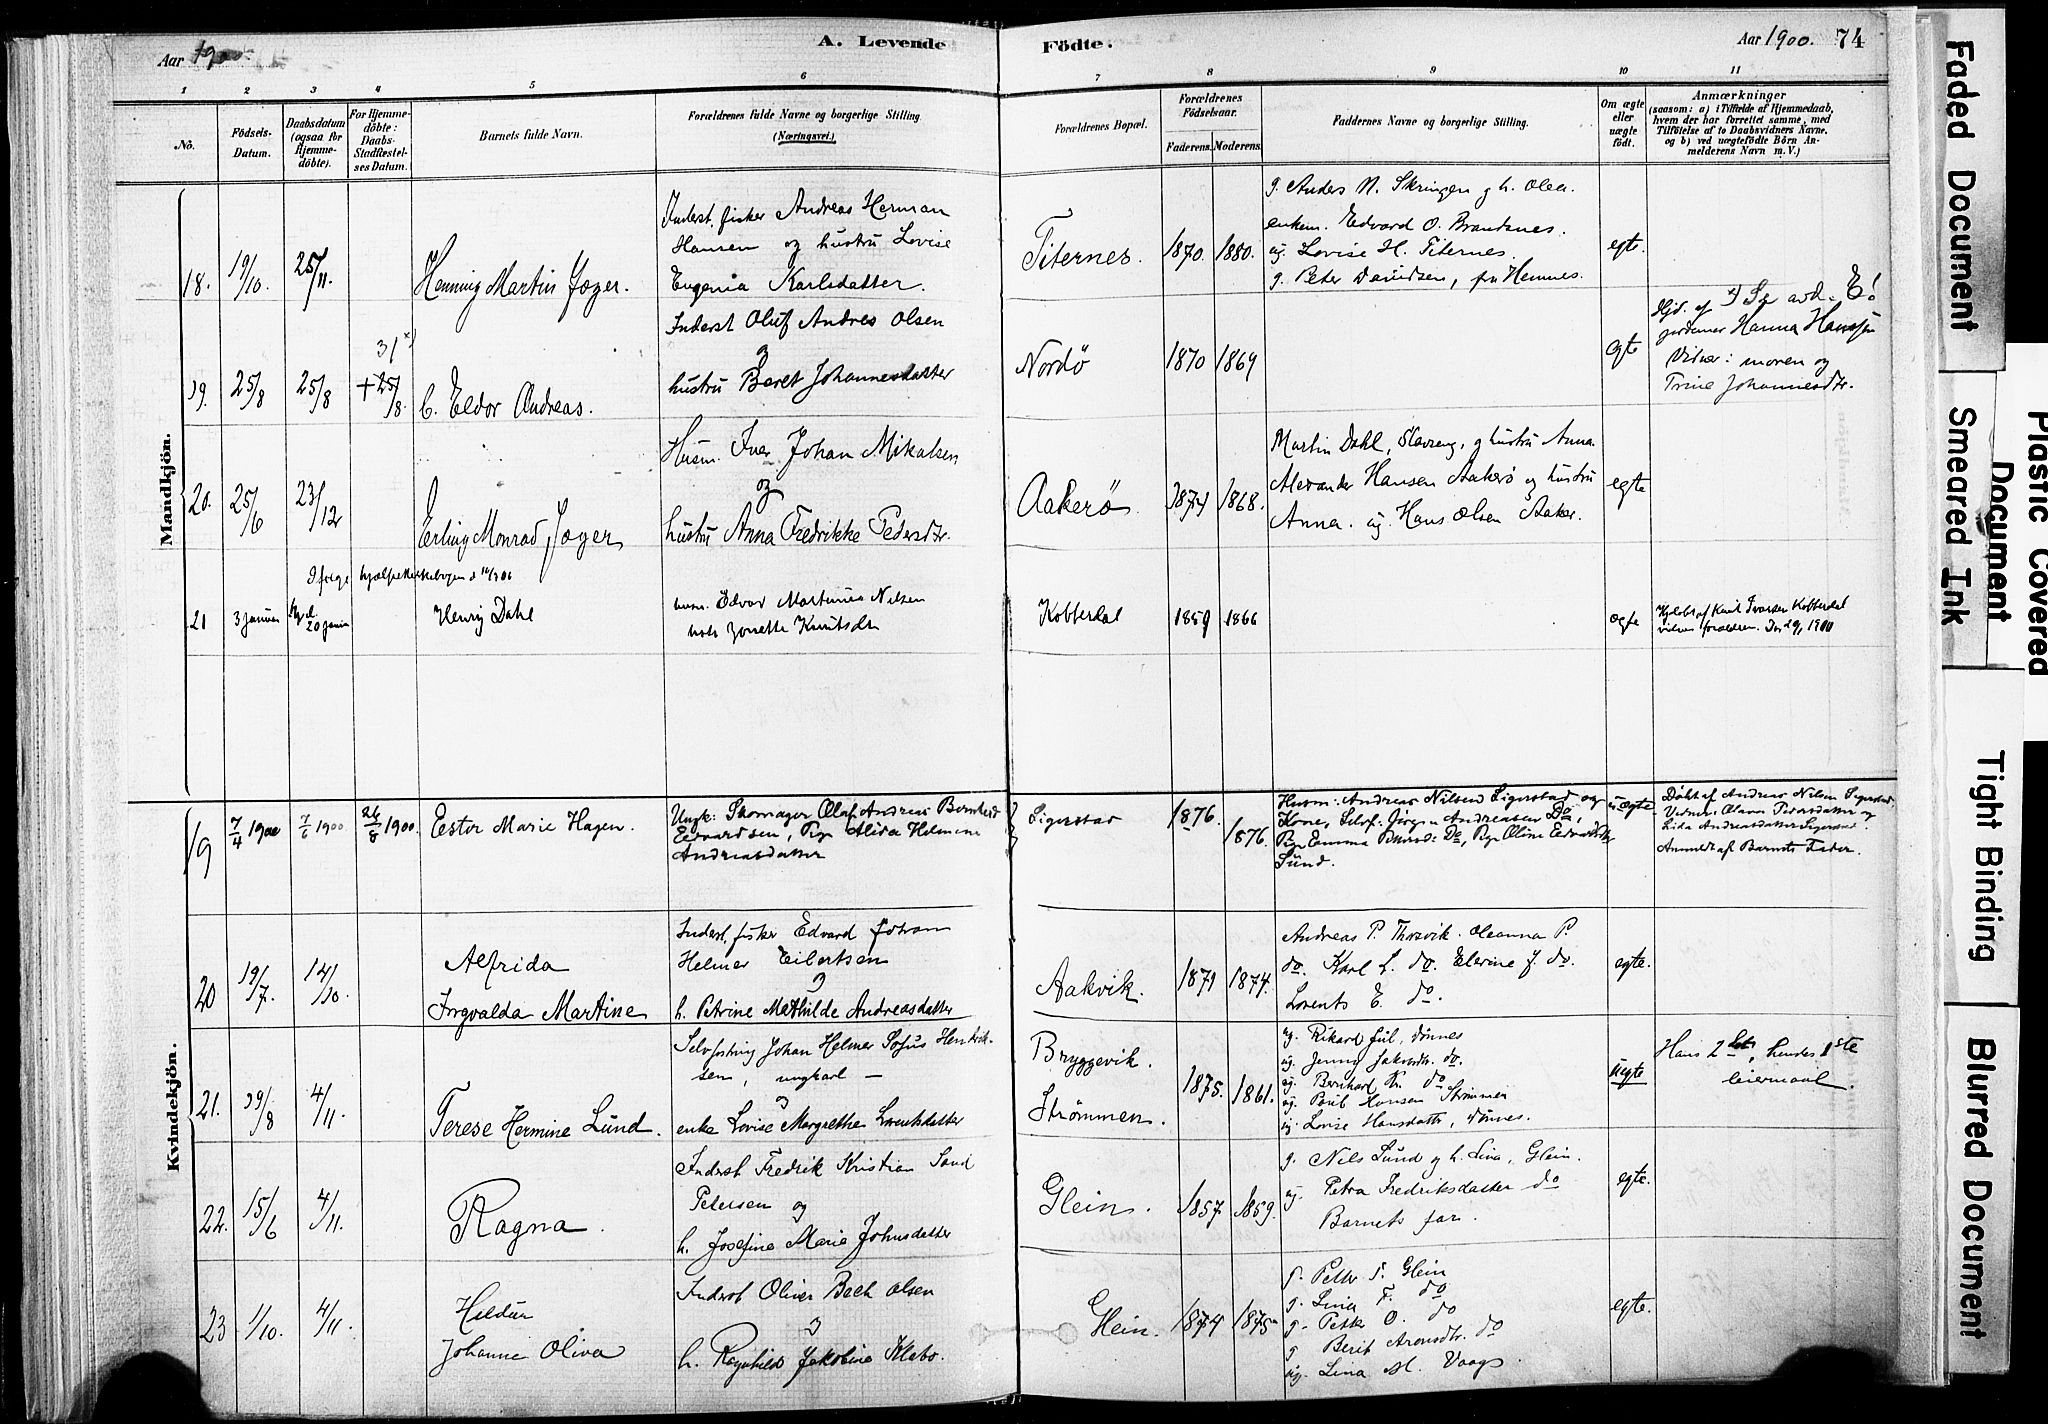 Aar 1900.
A. Levende Födte.
Aar 1900. 74
1 2 3 4 5 6 7 8 9 10 11
No.
Födsels-Datum.
Daabsdatum (ogsaa for Hjemme-döbte).
For Hjemme-döbte: Daabs-Stadfæstel-ses Datum.
Barnets fulde Navn.
Forældrenes fulde Navne og borgerlige Stilling.
(Næringsvei.)
Forældrenes Bopæl.
Forældrenes Födselsaar.
Faderens. Moderens.
Faddernes Navne og borgerlige Stilling.
Om ægte eller uægte födt.
Anmærkninger
(saasom: a) i Tilfælde af Hjemmedaab, hvem der har forrettet samme, med Tilföielse af to Daabsvidners Navne, og b) ved uægtefödte Börn An-melderens Navn m. V.)
Mandkjön.
18. 19/10. 25/11. Henning Martin Jæger.
Inderst, fisker Andreas Herman
Hansen og hustru Lovise
Eugenia Karlsdatter.
Titernes. 1870. 1880.
g. Anders N. Skringen g h. Olea.
enkem. Edvard O. Brandsnes.
ug. Lovise H. Titernes.
g. Peter Davidsen, fra Hemnes.
egte.
19. 25/8 25/8 31 x) +25/8. C. Eldor Andreas.
Inderst Oluf Andres Olsen
og
hustru Beret Johannesdatter
Nordö 1870 1869
egte
x) Se avd. E!
Hjd. af
jordemor Hanna Hanssen
Vidner: moren og
Trine Johannesdtr.
20. 25/6 23/12 Erling Monrad Jæger
Husm. Iver Johan Mikalsen
og
hustru Anna Fredrikke Pedersdtr.
Aakerö 1874 1868.
Martin Dahl, Slavseng, g hustru Anna.
Alexander Hansen Aakerö og hustru
Anna. ug. Hans Olsen Aaker.
egte
21 3 januar 20 januar Henry Dahl
husm. Edvar Martinus Nilsen
Kobberdal 1859 1866
egte
Kobberdal
vidner forældrene. 1900
Kvindekjön.
19 7/4 1900 7/6 1900 26/8 1900. Ester Marie Hagen.
Ungk: Skomager Olaf Andreas Bernhard
Edvardsen, Pige Alida Helmine
Andreasdatter
Sigerstad 1876. 1876.
Husm: Andreas Nilsen Sigerstad og
Kone, Selvf: Jörgen Andreasen Do,
Pige Emma Do, Pige Oline Edvardsdtr
Sund.
uægte.
Döbt af Andreas Nilsen Sigerstad.
Vidner: Olava Pedersdatter og
Lida Andreasdatter Sigerstad.
Anmeldt af Barnets Fader.
20 19/7. 14/10. Alfrida
Ingvalda Martine
Inderst, fisker Edvard Johan
Helmer Eibertsen
og
h. Petrine Mathilde Andreasdatter
Aakvik. 1871 1874.
Andreas P. Thorvik. Oleanna P.
do. Karl L. do. Elerine J. do.
Lorents E. do.
egte.
21. 29/8 4/11. Terese Hermine Lund.
Johan Helmer Sofus Henrik-
sen, ungkarl —
og
enke Lovise Margrethe Lorentsdatter
Bryggevik.
Strömmen. 1875. 1861.
ug. Rikard Jul, Dönnes
ug. Jenny Jakobsdtr. do.
ug. Bernhard Kr. do
ug. Paul Hansen Strömmen
ug. Lovise Hansdatter, Dönnes.
uegte
Hans 2det, hendes 1ste
leiermaal.
22. 15/6 4/11. Ragna.
Inderst Fredrik Kristian Sand
Petersen og
h. Josefine Marie Johnsdatter
Glein. 1857. 1859.
g. Nils Lund g h. Lina, Glein.
ug. Petra Fredriksdatter do
Barnets far.
egte.
23 1/10. 4/11. Hildur
Johanne Oliva
Inderst Oliver Bech Olsen
og
h. Ragnhild Jakobine Klabo.
Glein. 1874 1875
g. Petter P. Glein
g. Lina F. do
g. Petter O. do
g Berit Aronsdtr. do
ug. Lina M. Vaags.
egte.
Faded Document
Smeared Ink
Plastic Covered Document
Tight Binding
Blurred Document